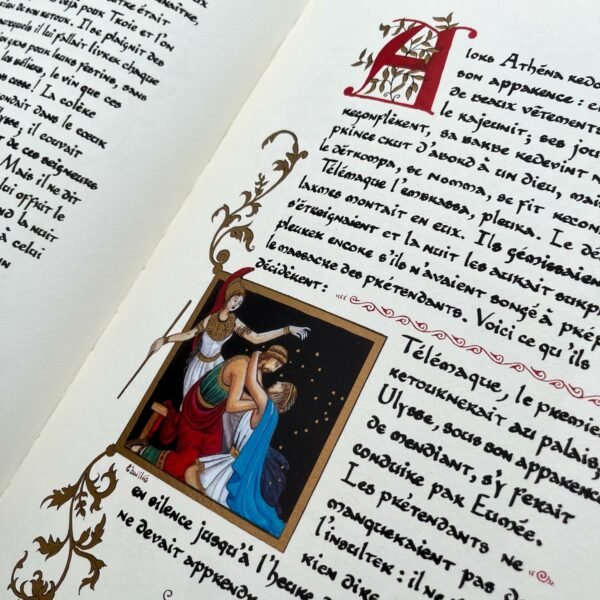 était
déjà pour Troie et l'on
de son retour. Il se plaignit des
il lui fallait livrer chaque
pour leurs festins, sans
les béliers, le vin que ces
! La colère
dans le cœur
il couvait
de ces seigneurs
Mais il ne dit
lui offrit le
la nuit
à celui
Alors Athéna redo
son apparence :
de beaux vêtements
le rajeunit ; ses jou
regonflèrent, sa barbe redevint n
prince crut d'abord à un dieu, mai
le détrompa, se nomma, se fit reconn
Télémaque l'embrassa, pleura. Le dé
larmes montait en eux. Ils gémissaien
s'éteignaient et la nuit les aurait surpri
pleurer encore s'ils n'avaient songé à prép
le massacre des prétendants. Voici ce qu'ils
décidèrent :
Télémaque, le premier
retournerait au palais,
Ulysse, sous son apparence
de mendiant, s'y ferait
conduire par Eumée.
Les prétendants ne
manqueraient pas de
l'insulter : il ne
rien dire
en silence jusqu'à l'heure
ne devait apprendr